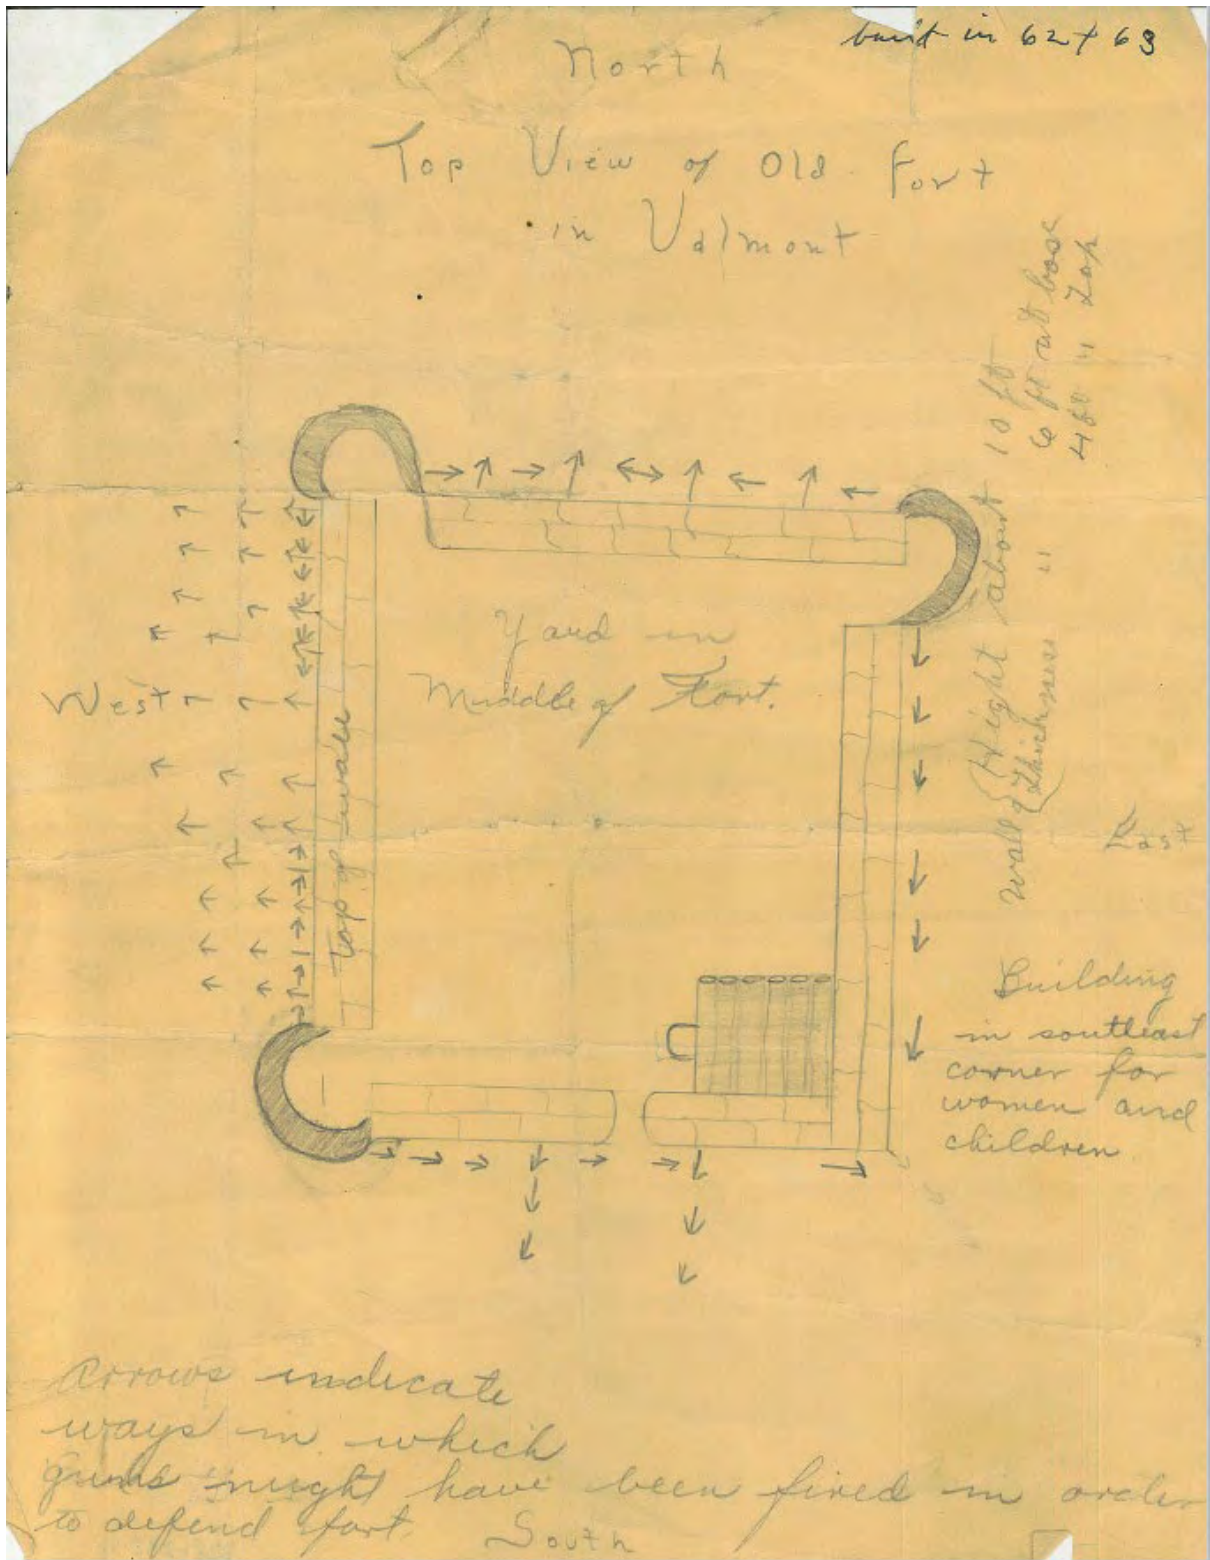 built in 62 + 63
North
Top View of Old Fort
in Valmont
Wall of { Hight about 10 ft
Thickness " 6 ft at base
4 ft " Top
Yard in
Middle of Fort.
West
Top of wall
East
Building
in southeast
corner for
women and
children
Arrows indicate
ways in which
guns might have been fired in order
to defend fort.
South